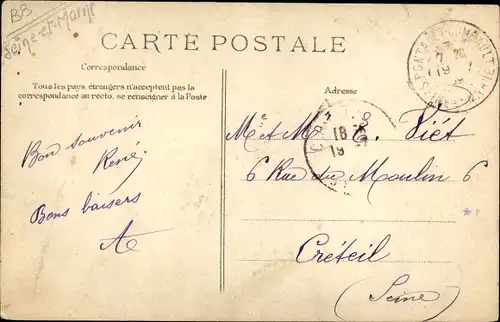 BB
Seine-et-Marne
CARTE POSTALE
Correspondance
Tous les pays étrangers n'acceptent pas la
correspondance au recto, se renseigner à la Poste
Adresse
Bon souvenir
René
Bons baisers
M et Mme E. Viét
6 Rue du Moulin 6
Créteil
(Seine)
18
19
7
19